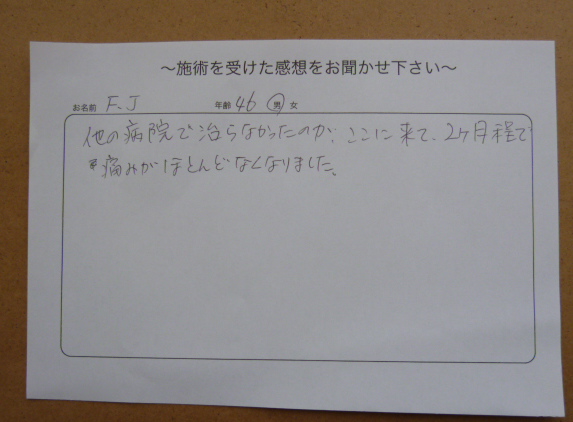 ～施術を受けた感想をお聞かせ下さい～
お名前 F.J 年齢 46 男 女
他の病院で治らなかったのが、ここに来て、2ヶ月程で
痛みがほとんどなくなりました。